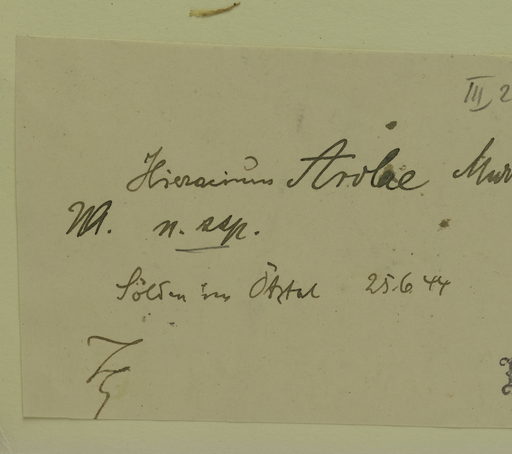 III, 2
Hieracium Arolae Murr
n. ssp.
Sölden im Ötztal 25.6.44